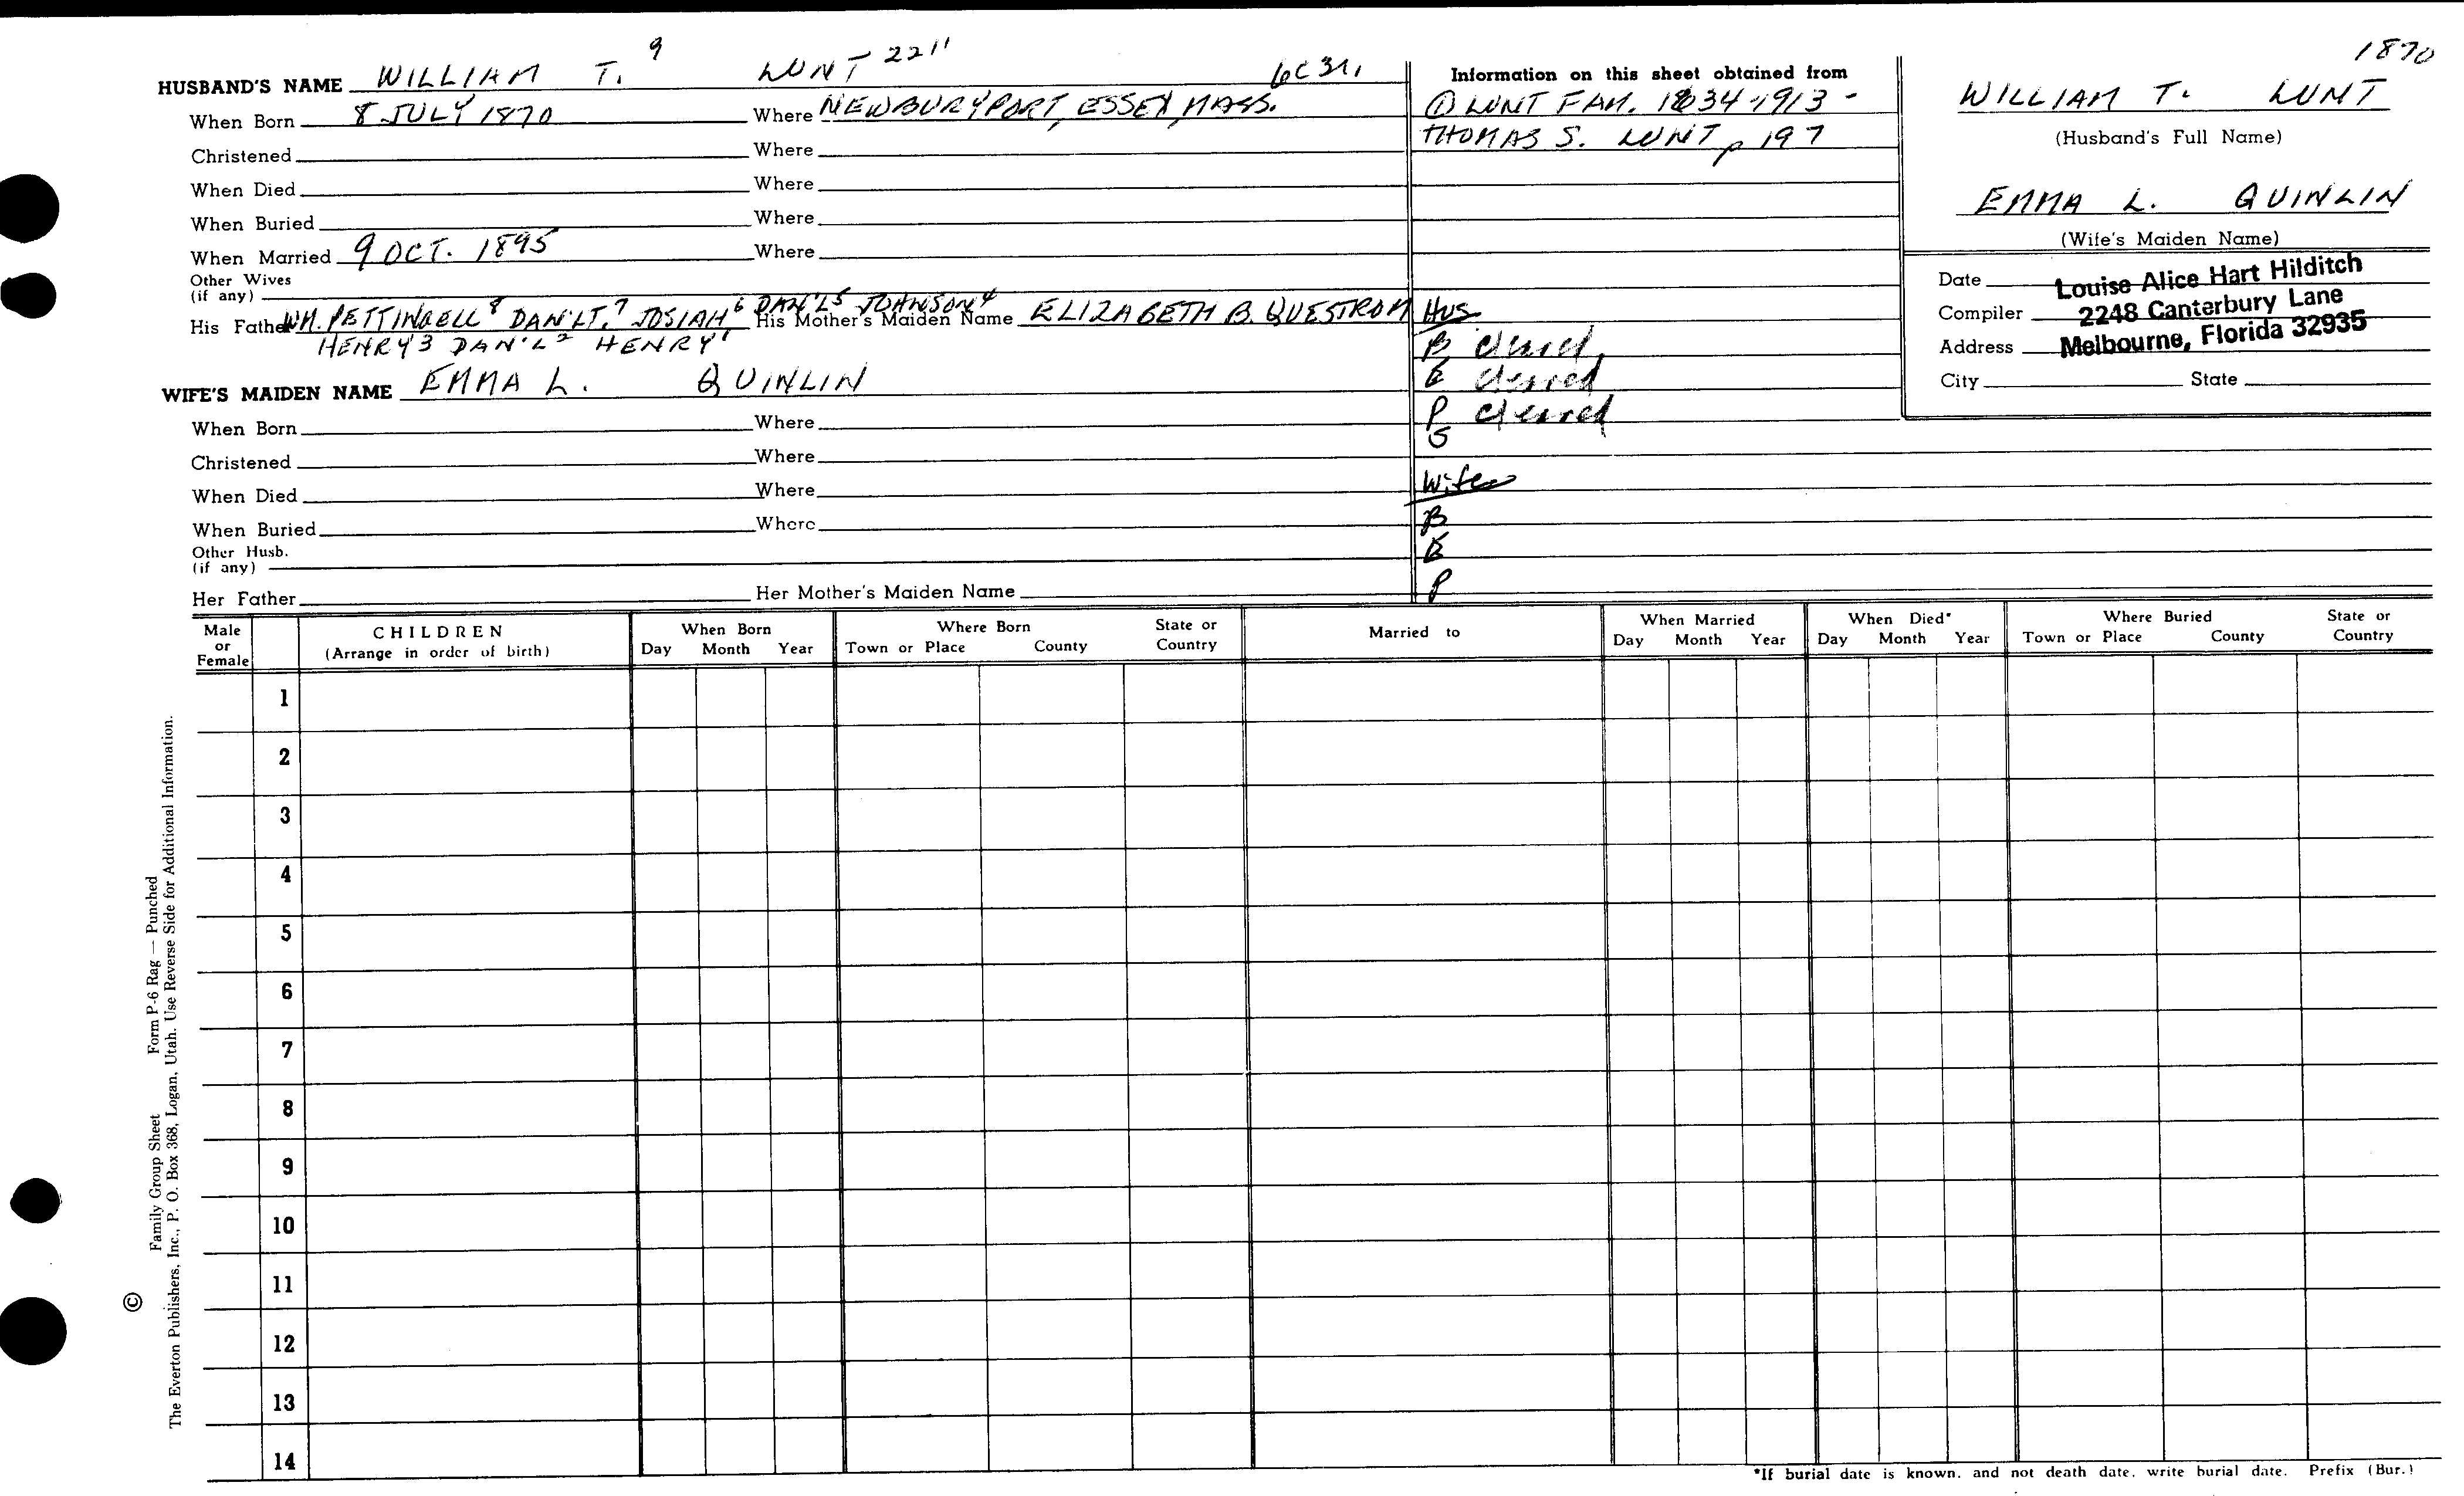 1870
HUSBAND'S NAME WILLIAM T.⁹ LUNT 2211
When Born 8 JULY 1870 Where NEWBURYPORT, ESSEX, MASS.
Christened Where
When Died Where
When Buried Where
When Married 9 OCT. 1895 Where
Other Wives
(if any)
His Father WM. PETTINGELL⁸ DAN'L T.⁷ JOSIAH⁶ DAN'L⁵ JOHNSON⁴ His Mother's Maiden Name ELIZABETH B. QUESTROM
HENRY³ DAN'L² HENRY¹
WIFE'S MAIDEN NAME EMMA L. QUINLIN
When Born Where
Christened Where
When Died Where
When Buried Where
Other Husb.
(if any)
Her Father Her Mother's Maiden Name
Information on this sheet obtained from
① LUNT FAM. 1634-1913 -
THOMAS S. LUNT, p 197
HUS
B cleared
E cleared
P cleared
S
Wife
B
E
P
WILLIAM T. LUNT
(Husband's Full Name)
EMMA L. QUINLIN
(Wife's Maiden Name)
Date Louise Alice Hart Hilditch
Compiler 2248 Canterbury Lane
Address Melbourne, Florida 32935
City State
Male or Female
CHILDREN
(Arrange in order of birth)
When Born
Day Month Year
Where Born
Town or Place County
State or Country
Married to
When Married
Day Month Year
When Died*
Day Month Year
Where Buried
Town or Place County
State or Country
1
2
3
4
5
6
7
8
9
10
11
12
13
14
*If burial date is known, and not death date, write burial date. Prefix (Bur.)
© Family Group Sheet Form P-6 Rag — Punched
The Everton Publishers, Inc., P. O. Box 368, Logan, Utah. Use Reverse Side for Additional Information.